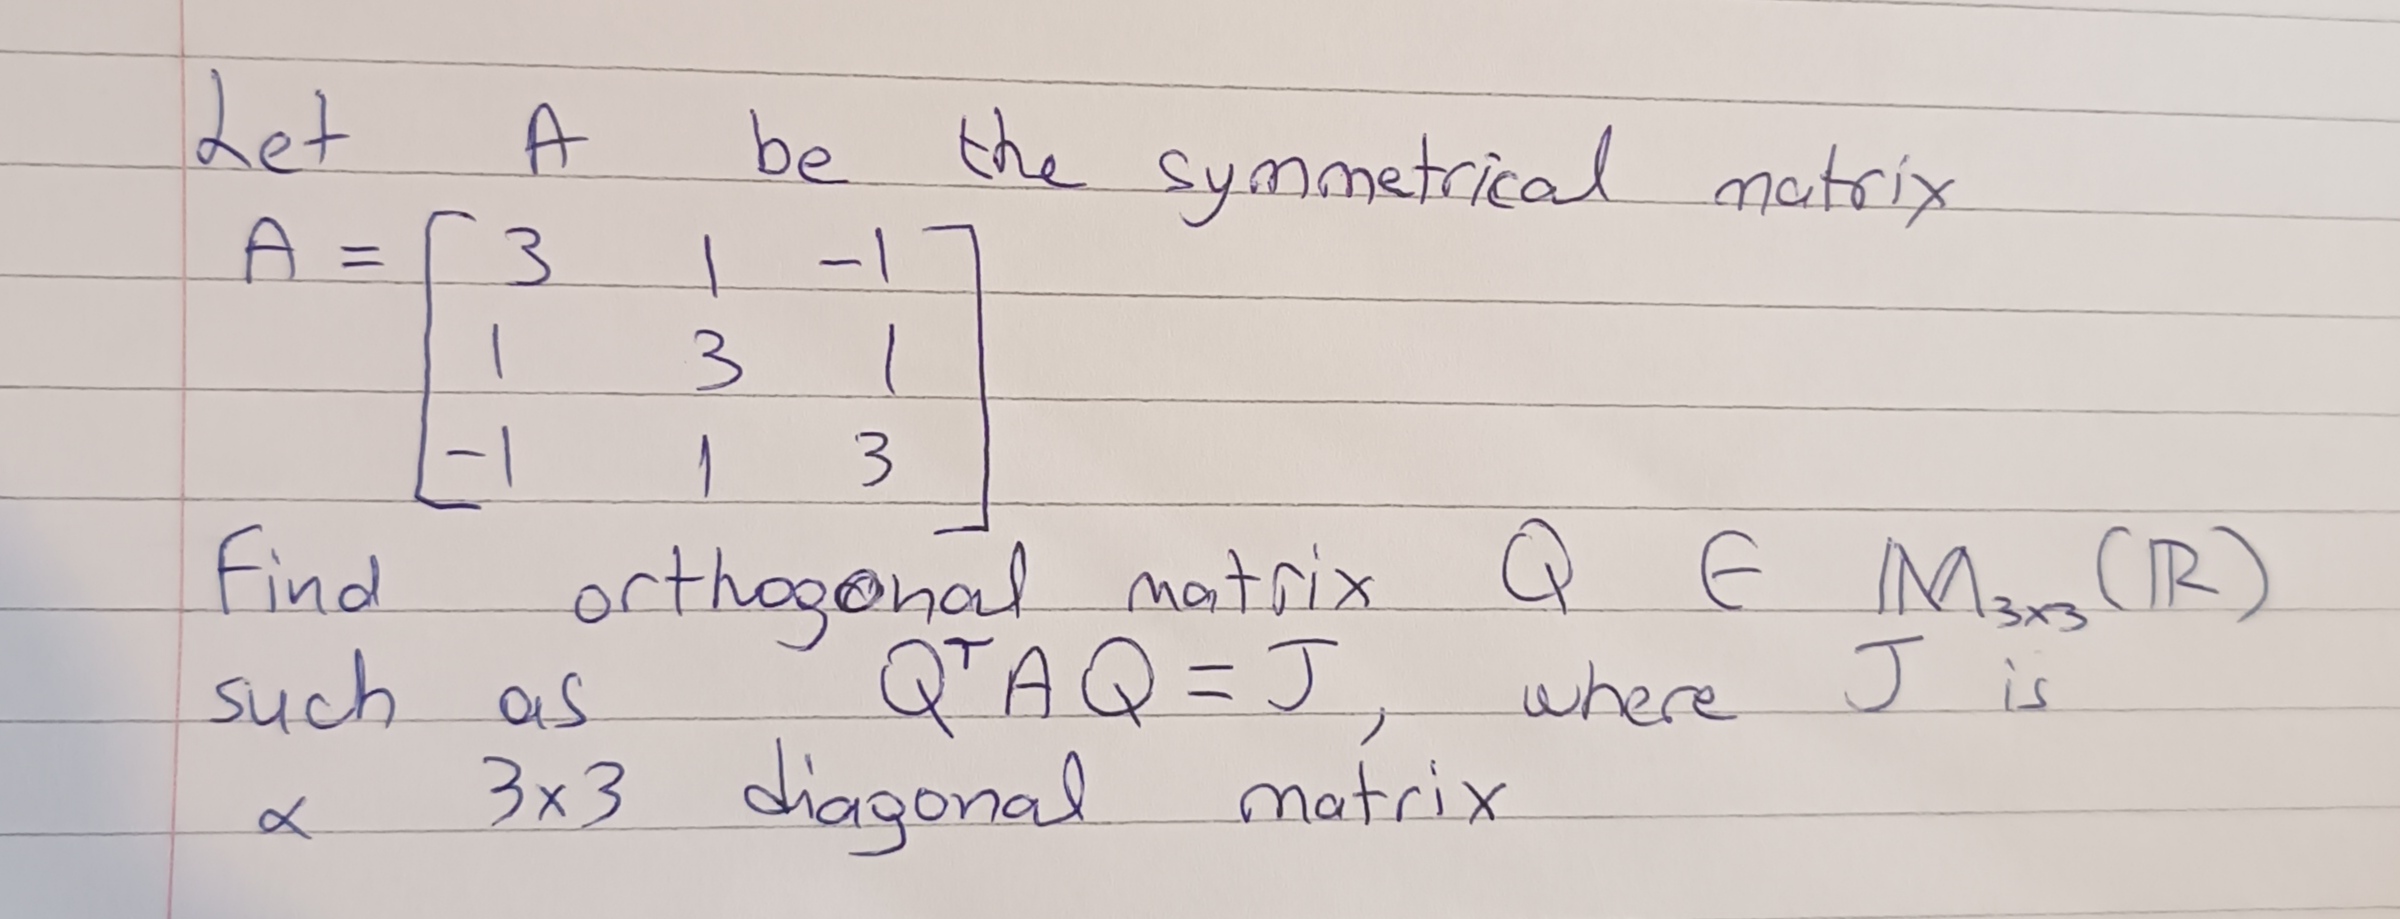 Let A be the symmetrical matrix
A = [ 3 1 -1
1 3 1
-1 1 3 ]
Find orthogonal matrix Q ∈ M₃ₓ₃(ℝ)
such as QᵀAQ = J, where J is
α 3x3 diagonal matrix